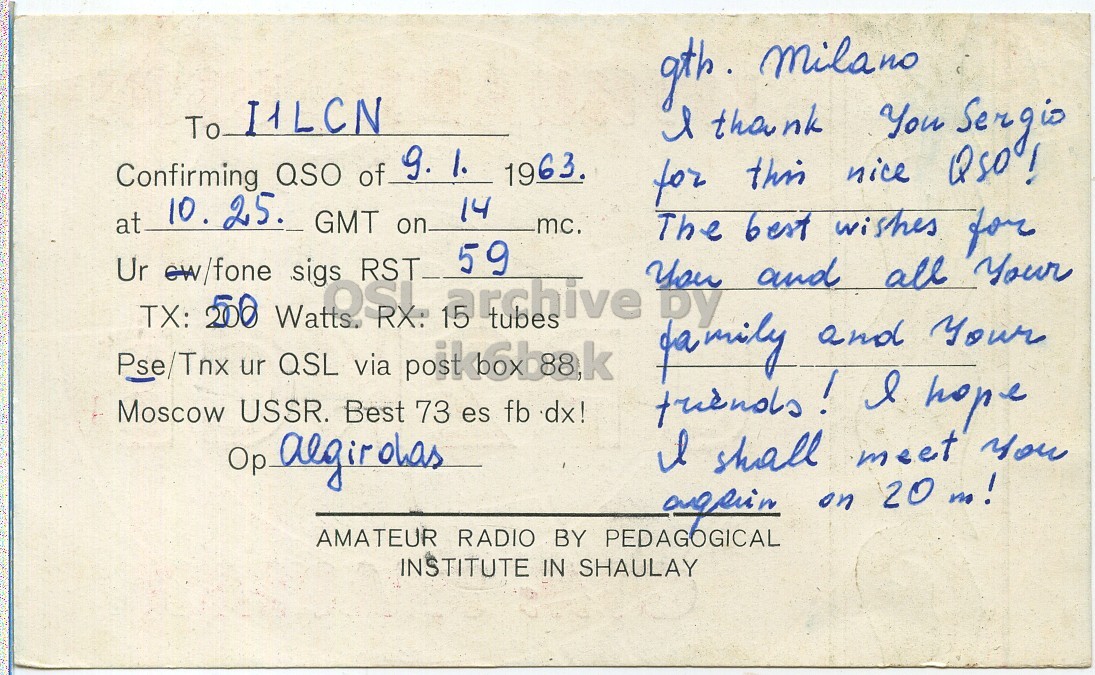 To I1LCN
Confirming QSO of 9. 1. 1963.
at 10. 25. GMT on 14 mc.
Ur cw/fone sigs RST 59
TX: 50 Watts. RX: 15 tubes
Pse/Tnx ur QSL via post box 88,
Moscow USSR. Best 73 es fb dx!
Op Algirdas
AMATEUR RADIO BY PEDAGOGICAL
INSTITUTE IN SHAULAY
gth. Milano
I thank You Sergio
for this nice QSO!
The best wishes for
You and all Your
family and Your
friends! I hope
I shall meet You
again on 20 m!
QSL archive by
ik6bak